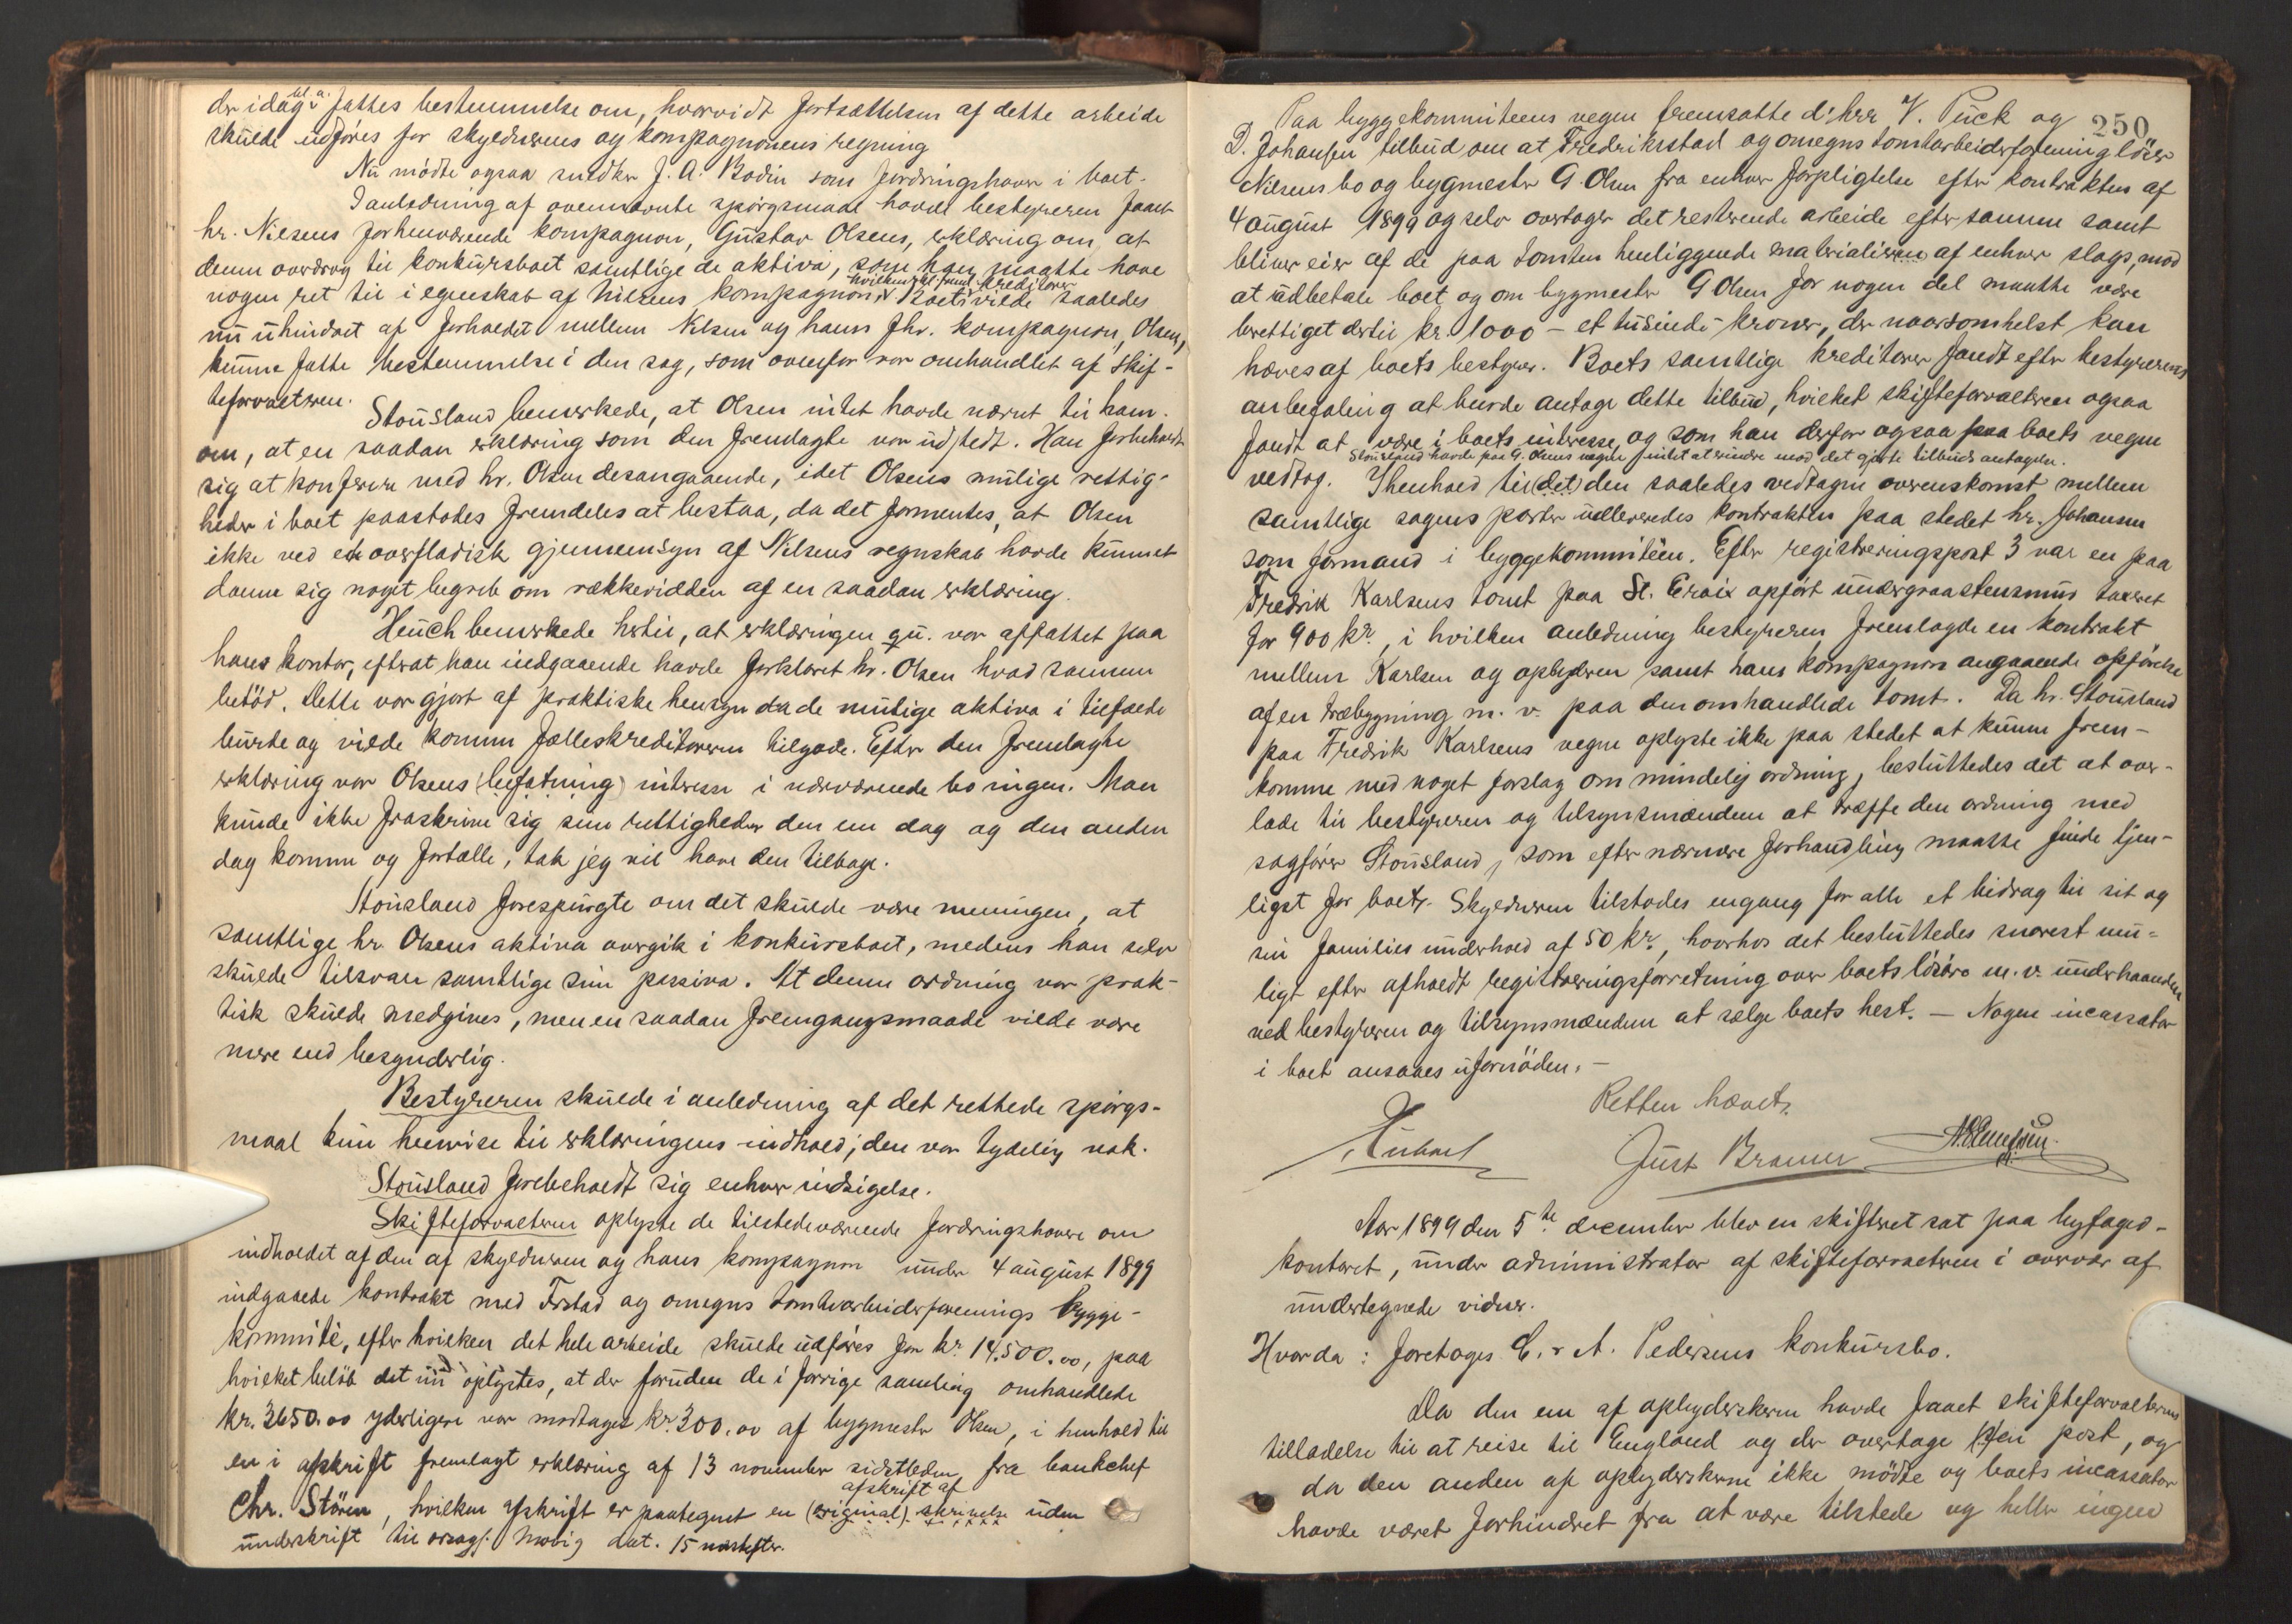 der idag bl. a. fattes bestemmelse om, hvorvidt fortsættelsen af dette arbeide
skulde udføres for skyldnerens og kompagnonens regning
Nu mødte ogsaa snedker J. A. Bodin som fordringshaver i boet.
I anledning af ovennævnte spørgsmaal havde bestyreren faaet
hr. Nielsens forhenværende kompagnon, Gustav Olsens, erklæring om, at
denne overdrog til konkursboet samtlige de aktiva, som han maatte have
nogen ret til i egenskab af Nilsens kompagnon, hvilken kreditorer
Boet vilde saaledes
nu uhindret af forholdet mellem Nilsen og hans fhv. kompagnon, Olsen,
kunne fatte bestemmelse i den sag, som ovenfor var omhandlet af skif-
teforvalteren.
Stousland bemerkede, at Olsen intet havde nævnt til ham
om, at en saadan erklæring som den fremlagte var udstedt. Han forbeholdt
sig at konferere med hr. Olsen desangaaende, idet Olsens mulige rettig-
heder i boet paastodes fremdeles at bestaa, da det formentes, at Olsen
ikke ved et overfladisk gjennemsyn af Nilsens regnskab havde kunnet
danne sig noget begreb om rækkevidden af en saadan erklæring.
Heuch bemerkede hertil, at erklæringen qu. var affattet paa
hans kontor, efterat han indgaaende havde forklaret hr. Olsen hvad samme
betød. Dette var gjort af praktiske hensyn da de mulige aktiva i tilfælde
burde og vilde komme fælleskreditorerne tilgode. Efter den fremlagte
erklæring var Olsens (befatning) interesse i nærværende bo ingen. Man
kunde ikke fraskrive sig sine rettigheder den ene dag og den anden
dag komme og fortælle, tak jeg vil have den tilbage.
Stousland forespurgte om det skulde være meningen, at
samtlige hr. Olsens aktiva overgik i konkursboet, medens han selv
skulde tilsvare samtlige sine passiva. At denne ordning var prak-
tisk skulde medgives, men en saadan fremgangsmaade vilde være
mere end besynderlig.
Bestyreren skulde i anledning af det rettede spørgs-
maal kun henvise til erklæringens indhold; den var tydelig nok.
Stousland forbeholdt sig enhver indsigelse.
Skifteforvalteren oplyste de tilstedeværende fordringshavere om
indholdet af den af skyldneren og hans kompagnon under 4 august 1899
indgaaede kontrakt med Frstad og omegns tomtearbeiderforenings bygge-
kommite, efter hvilken det hele arbeide skulde udføres for kr. 14.500.00, paa
hvilket beløb det nu oplystes, at der foruden de i forrige samling omhandlede
kr. 3650.00 yderligere var modtaget kr. 300.00 af bygmester Olsen, i henhold til
en i afskrift fremlagt erklæring af 13 november sidstleden fra bankchef
Chr. Støren, hvilken afskrift er paategnet en (original) afskrift af skrivelse uden
underskrift til orsagf. Mobig dat. 15 næstefter.
250
Paa byggekommiteens vegne fremsatte d'hrr V. Puck og
D. Johansen tilbud om at Fredriksstad og omegns tomtarbeiderforening løser
Nilsens bo og bygmester G. Olsen fra enhver forpligtelse efter kontrakten af
4 august 1899 og selv overtager det resterende arbeide efter samme samt
bliver eier af de paa tomten henliggende materialier af enhver slags, mod
at udbetale boet og om bygmester G Olsen for nogen del maatte være
berettiget dertil kr. 1000 – et tusinde – kroner, der naarsomhelst kan
hæves af boets bestyrer. Boets samtlige kreditorer fandt efter bestyrerens
anbefaling at burde antage dette tilbud, hvilket skifteforvalteren ogsaa
fandt at være i boets interesse, og som han derfor ogsaa paa boets vegne
Stousland havde paa G. Olsens vegne intet at erindre mod det gjorte tilbuds antagelse.
vedtog. I henhold til (det) den saaledes vedtagne overenskomst mellem
samtlige sagens parter udleveredes kontrakten paa stedet hr. Johansen
som formand i byggekommitéen. Efter registreringspost 3 var en paa
Fredrik Karlsens tomt paa St. Croix opført undergraastensmur taxeret
for 900 kr., i hvilken anledning bestyreren fremlagde en kontrakt
mellem Karlsen og opbyderen samt hans kompagnon angaaende opførelse
af en træbygning m. v. paa den omhandlede tomt. Da hr. Stousland
paa Fredrik Karlsens vegne oplyste ikke paa stedet at kunne frem-
komme med noget forslag om mindelig ordning, besluttedes det at over-
lade til bestyreren og tilsynsmændene at træffe den ordning med
sagfører Stousland, som efter nærmere forhandling maatte finde tjen-
ligst for boet. Skyldneren tilstodes engang for alle et bidrag til sit og
sin families underhold af 50 kr., hvorhos det besluttedes snarest mu-
ligt efter afholdt registreringsforretning over boets løsøre m. v. underhaanden
ved bestyreren og tilsynsmændene at sælge boets hest. — Nogen incassator
i boet ansaaes ufornøden. –
Retten hævet.
Just Bramer
Aar 1899 den 5te december blev en skifteret sat paa byfoged-
kontoret, under administrator af skifteforvalteren i overvær af
undertegnede vidner.
Hvorda: foretoges C. & A. Pedersens konkursbo.
Da den ene af opbyderskerne havde faaet skifteforvalterens
tilladelse til at reise til England og der overtage en post, og
da den anden af opbyderskerne ikke mødte og boets incassator
havde været forhindret fra at være tilstede og heller ingen